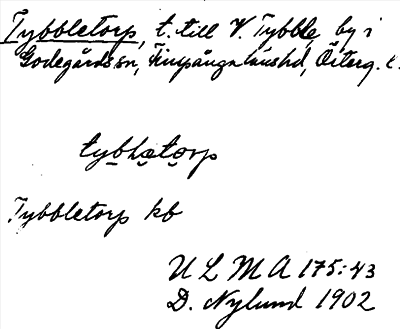 Tybbletorp, t. till V. Tybble, by i
Godegårds sn, Finspånga läns hd, Österg. l.
Tybbletorp kb
U L M A 175:43
D. Nylund 1902